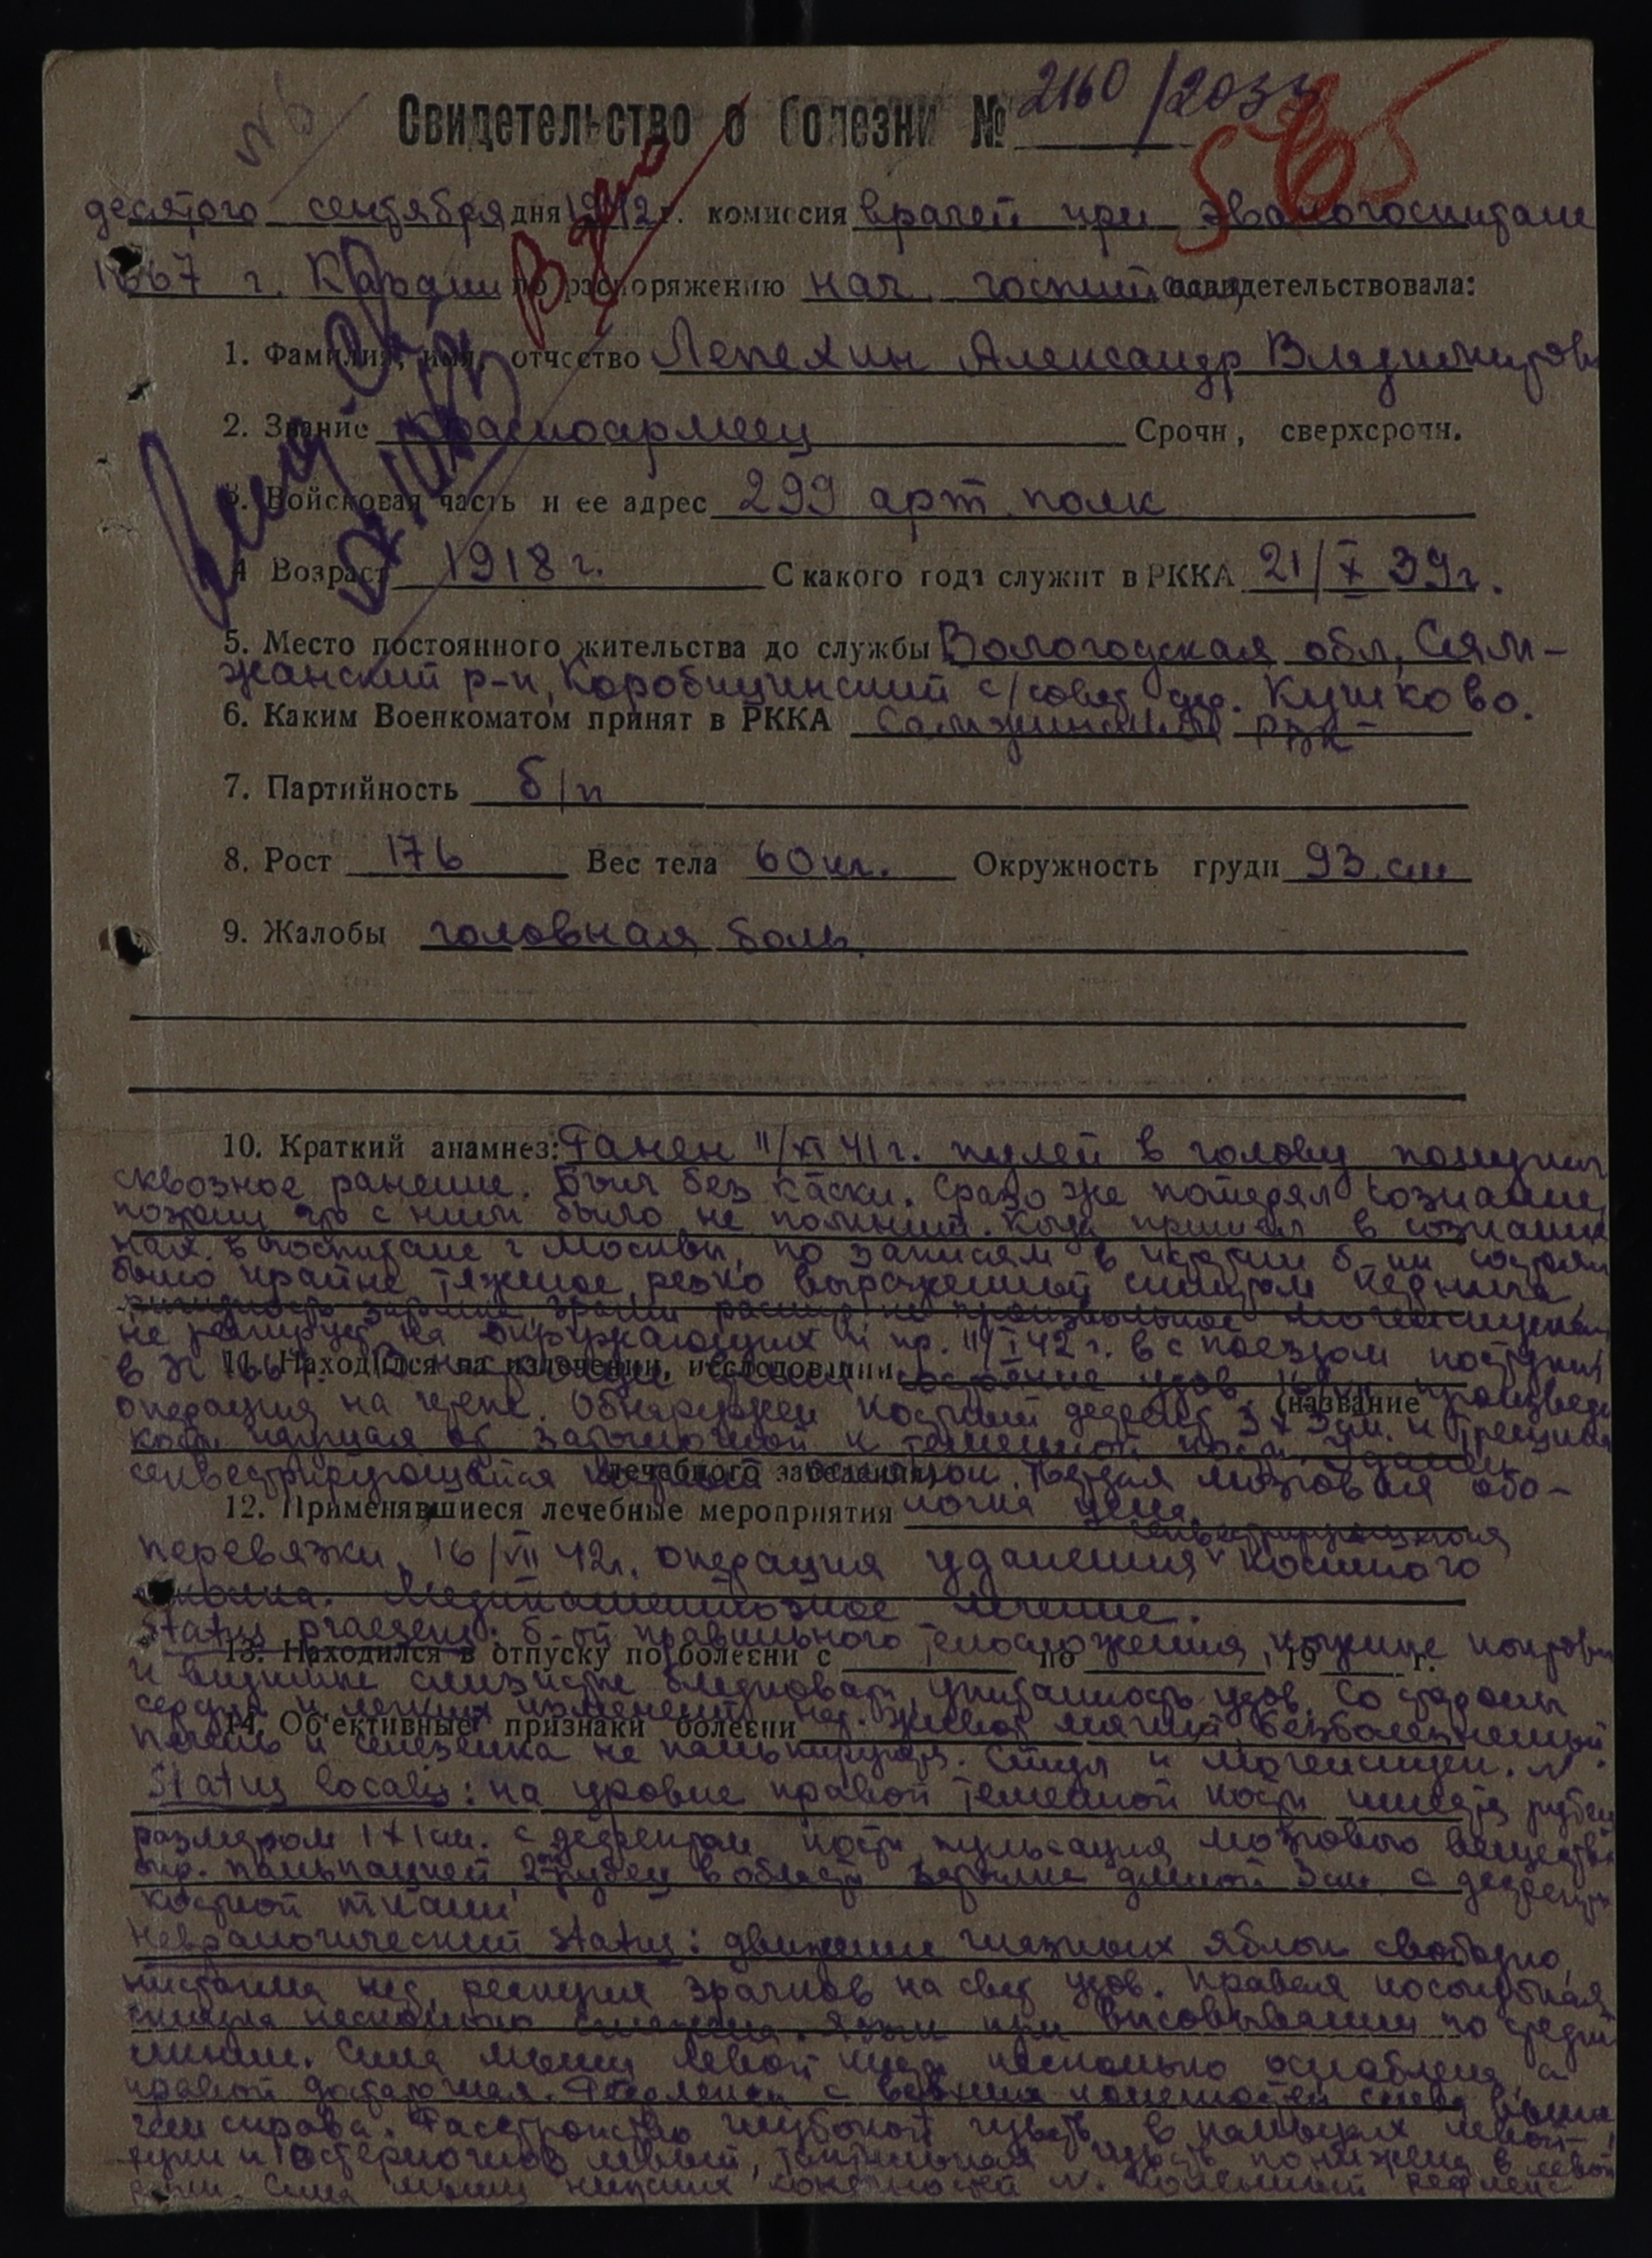 Свидетельство о болезни № 2160/203
565
десятого сентября дня 1942 г. комиссия врачей при эвакогоспитале
1667 г. по распоряжению нач. госпиталя освидетельствовала:
1. Фамилия, имя, отчество Лепехин Александр Владимиров
2. Звание красноармеец Срочн, сверхсрочн.
3. Войсковая часть и ее адрес 299 арт. полк
4 Возраст 1918 г. С какого года служит в РККА 21/X 39г.
5. Место постоянного жительства до службы Вологодская обл, Сям-
жанский р-н, Коробицинский с/совет дер. Кушково.
6. Каким Военкоматом принят в РККА РВК
7. Партийность б/п
8. Рост 176 Вес тела 60 кг. Окружность груди 93 см
9. Жалобы головная боль
10. Краткий анамнез: Ранен 11/XI 41 г. пулей в голову получил
сквозное ранение. Был без каски. Сразу же потерял сознание,
поэтому что с ним было не помнит. Когда пришел в сознание
нах. в госпитале г Москвы, по записям в истории б-ни состоян
было крайне тяжелое резко выраженный симптом Кернига,
ригидность затылка, зрачки расшир непроизвольное мочеиспускан
не реагирует на окружающих и пр. 11/I 42 г. в с поездом поступил
в 11. Находился на излечении, исследовании состояние удов. произведе
операция на черепе. Обнаружен костный дефект 3х3 см. и трещина (название
кости идущая от затылочной к теменной кости. Удален
секвестрирующийся костный осколок. Твердая мозговая обо- лечебного заведения)
12. Применявшиеся лечебные мероприятия лочка цела.
секвестрирующегося
перевязки, 16/VII 42г. операция удаления костного
осколка. Медикаментозное лечение.
Status praesens: б-ой правильного телосложения, кожные покровы
13. Находился в отпуску по болезни с по 19 г.
и видимые слизистые бледноваты, упитанность удов. Со стороны
сердца и легких изменений нет. Живот мягкий, безболезненный
14. Об'ективные признаки болезни
печень и селезенка не пальпируются. Стул и мочеиспуск. N.
Status localis: на уровне правой теменной кости имеется рубец
размером 1х1 см. с дефектом кости, пульсация мозгового вещества
опр. пальпацией, 2ой рубец в области затылка длиной 3 см с дефектом
костной ткани
Неврологический status: движение глазных яблок свободно,
нистагма нет, реакция зрачков на свет удов. Правая носогубная
складка несколько сглажена. Язык при высовывании по средней
линии. Сила мышц левой руки несколько ослаблена, а
правой достаточная. Рефлексы с верхних конечностей слева выше
чем справа. Расстройство глубокой чувств. в пальцах левой
руки и астереогноз левый, тактильная чувств понижена в левой
руки. Сила мышц нижних конечностей N. Коленный рефлекс